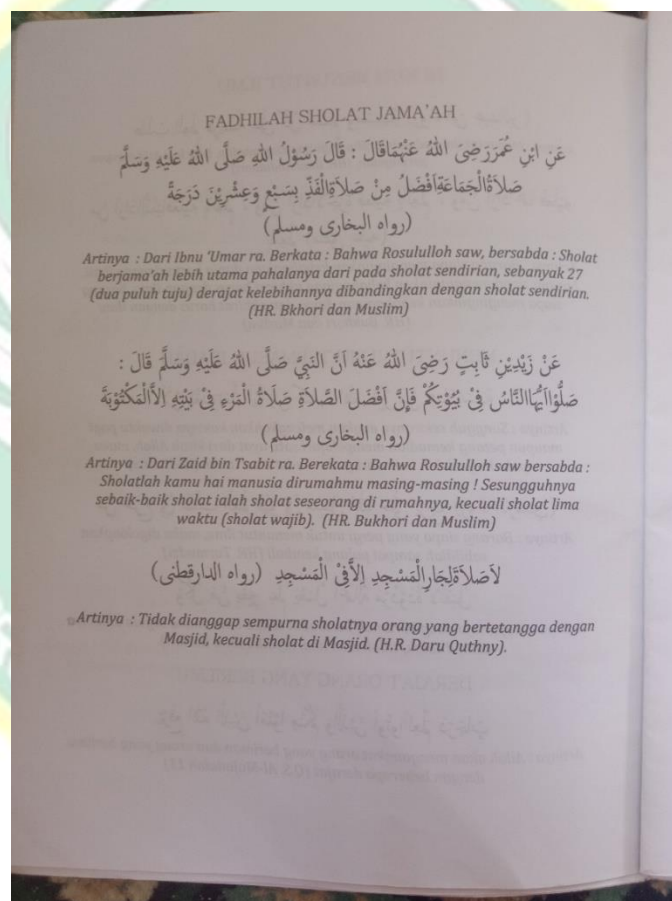 FADHILAH SHOLAT JAMA'AH
عَنِ ابْنِ عُمَرَرَضِىَ اللهُ عَنْهُمَاقَالَ : قَالَ رَسُوْلُ اللهِ صَلَّى اللهُ عَلَيْهِ وَسَلَّمَ
صَلَاةُالْجَمَاعَةِاَفْضَلُ مِنْ صَلَاةِالْفَذِّ بِسَبْعٍ وَعِشْرِيْنَ دَرَجَةً
(رواه البخارى ومسلم)
Artinya : Dari Ibnu 'Umar ra. Berkata : Bahwa Rosululloh saw, bersabda : Sholat
berjama'ah lebih utama pahalanya dari pada sholat sendirian, sebanyak 27
(dua puluh tuju) derajat kelebihannya dibandingkan dengan sholat sendirian.
(HR. Bkhori dan Muslim)
عَنْ زَيْدِيْنِ ثَابِتٍ رَضِىَ اللهُ عَنْهُ اَنَّ النَّبِيَّ صَلَّى اللهُ عَلَيْهِ وَسَلَّمَ قَالَ :
صَلُّوْااَيُّهَاالنَّاسُ فِىْ بُيُوْتِكُمْ فَإِنَّ اَفْضَلَ الصَّلَاةِ صَلَاةُ الْمَرْءِ فِىْ بَيْتِهِ اِلاَّالْمَكْتُوْبَةَ
(رواه البخارى ومسلم)
Artinya : Dari Zaid bin Tsabit ra. Berekata : Bahwa Rosululloh saw bersabda :
Sholatlah kamu hai manusia dirumahmu masing-masing ! Sesungguhnya
sebaik-baik sholat ialah sholat seseorang di rumahnya, kecuali sholat lima
waktu (sholat wajib). (HR. Bukhori dan Muslim)
لاَصَلاَةَلِجَارِالْمَسْجِدِ اِلاَّفِىْ الْمَسْجِدِ (رواه الدارقطنى)
Artinya : Tidak dianggap sempurna sholatnya orang yang bertetangga dengan
Masjid, kecuali sholat di Masjid. (H.R. Daru Quthny).